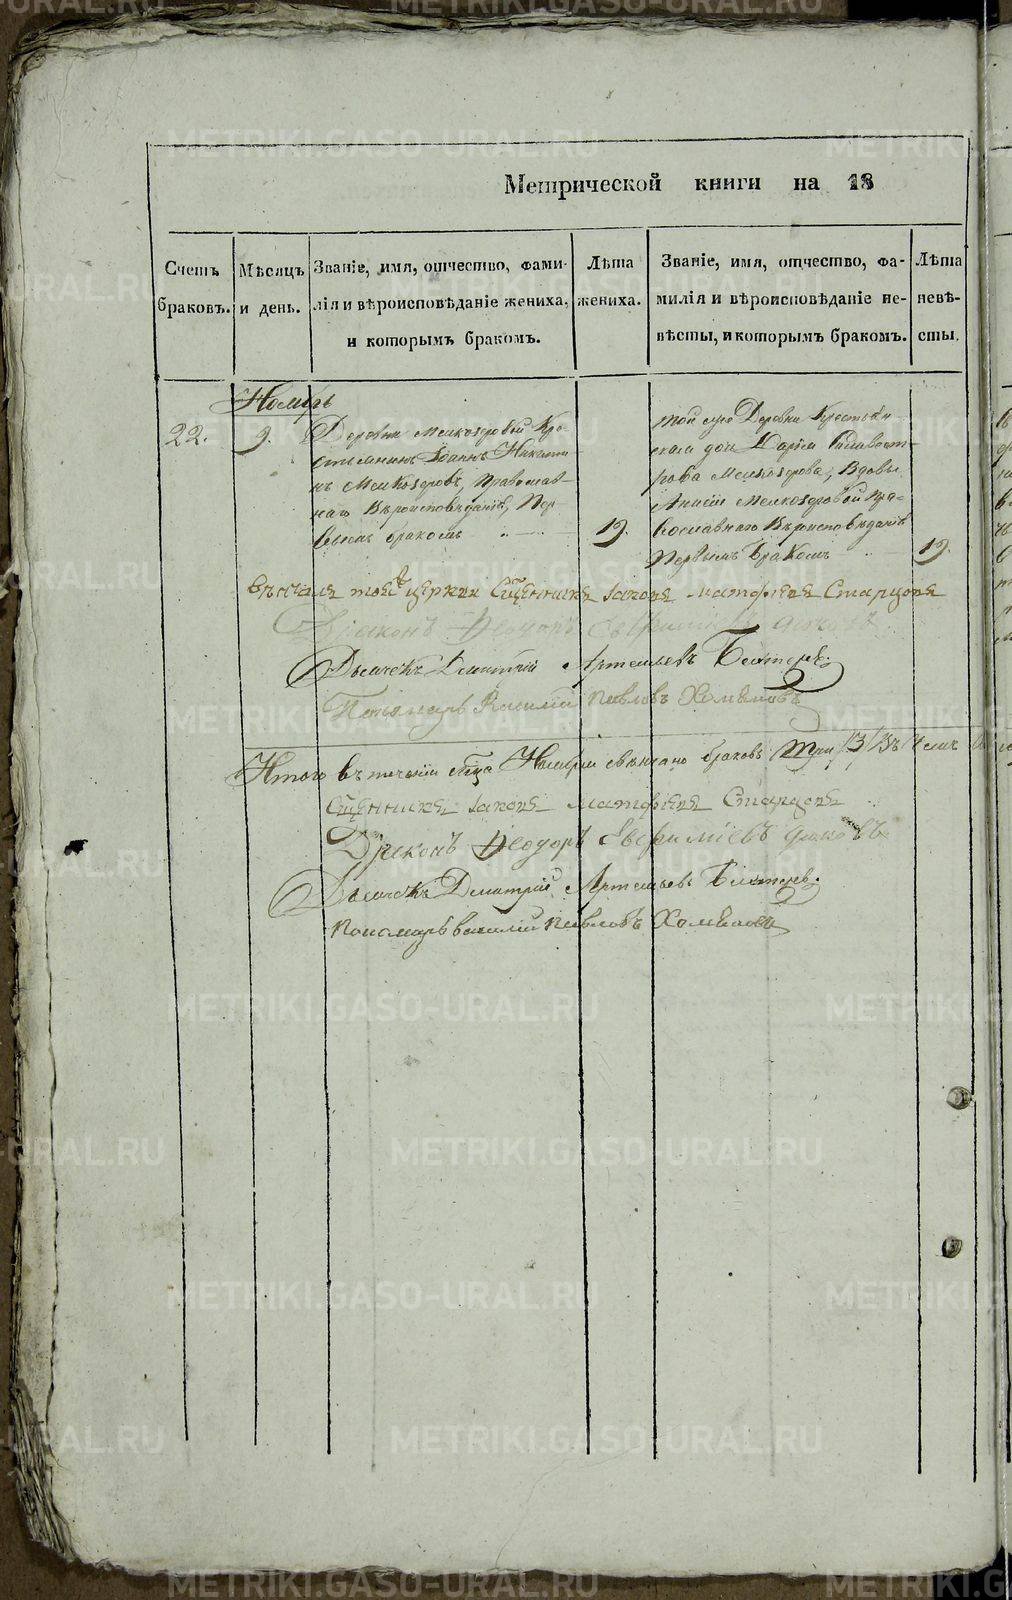 Метрической книги на 18
Счетъ браковъ.
Мѣсяцъ и день.
Званіе, имя, отчество, фами-
лія и вѣроисповѣданіе жениха,
и которымъ бракомъ.
Лѣта
жениха.
Званіе, имя, отчество, фа-
милія и вѣроисповѣданіе не-
вѣсты, и которымъ бракомъ.
Лѣта
невѣ-
сты.
Ноябрь
22.
9.
Деревни Мелкозеровой Кре-
стьянинъ Іоаннъ Никити
нъ Мелкозеровъ, Православ-
наго Вѣроисповѣданія, Пер-
вымъ бракомъ
19.
той же Деревни Крестьян
ская дочь Дарія
Мелкозерова, Вдовы
Анисіи Мелкозеровой Пра-
вославнаго Вѣроисповѣданія
Первымъ Бракомъ
19.
вѣнчалъ тоей церкви Сщенникъ Іаковъ Матфеевъ Старцовъ
Діаконъ Ѳеодоръ
Дьячекъ Дмитрій Артемьевъ
Пономарь Василій Павловъ Хомяковъ
Итого въ теченіи мца Ноября свѣнчано браковъ три /3/
Сщенникъ Іаковъ Матфеевъ Старцовъ
Діаконъ Ѳеодоръ Евфиміевъ
Дьячекъ Дмитрій Артемьевъ
Пономарь Василій Павловъ Хомяковъ
METRIKI.GASO-URAL.RU